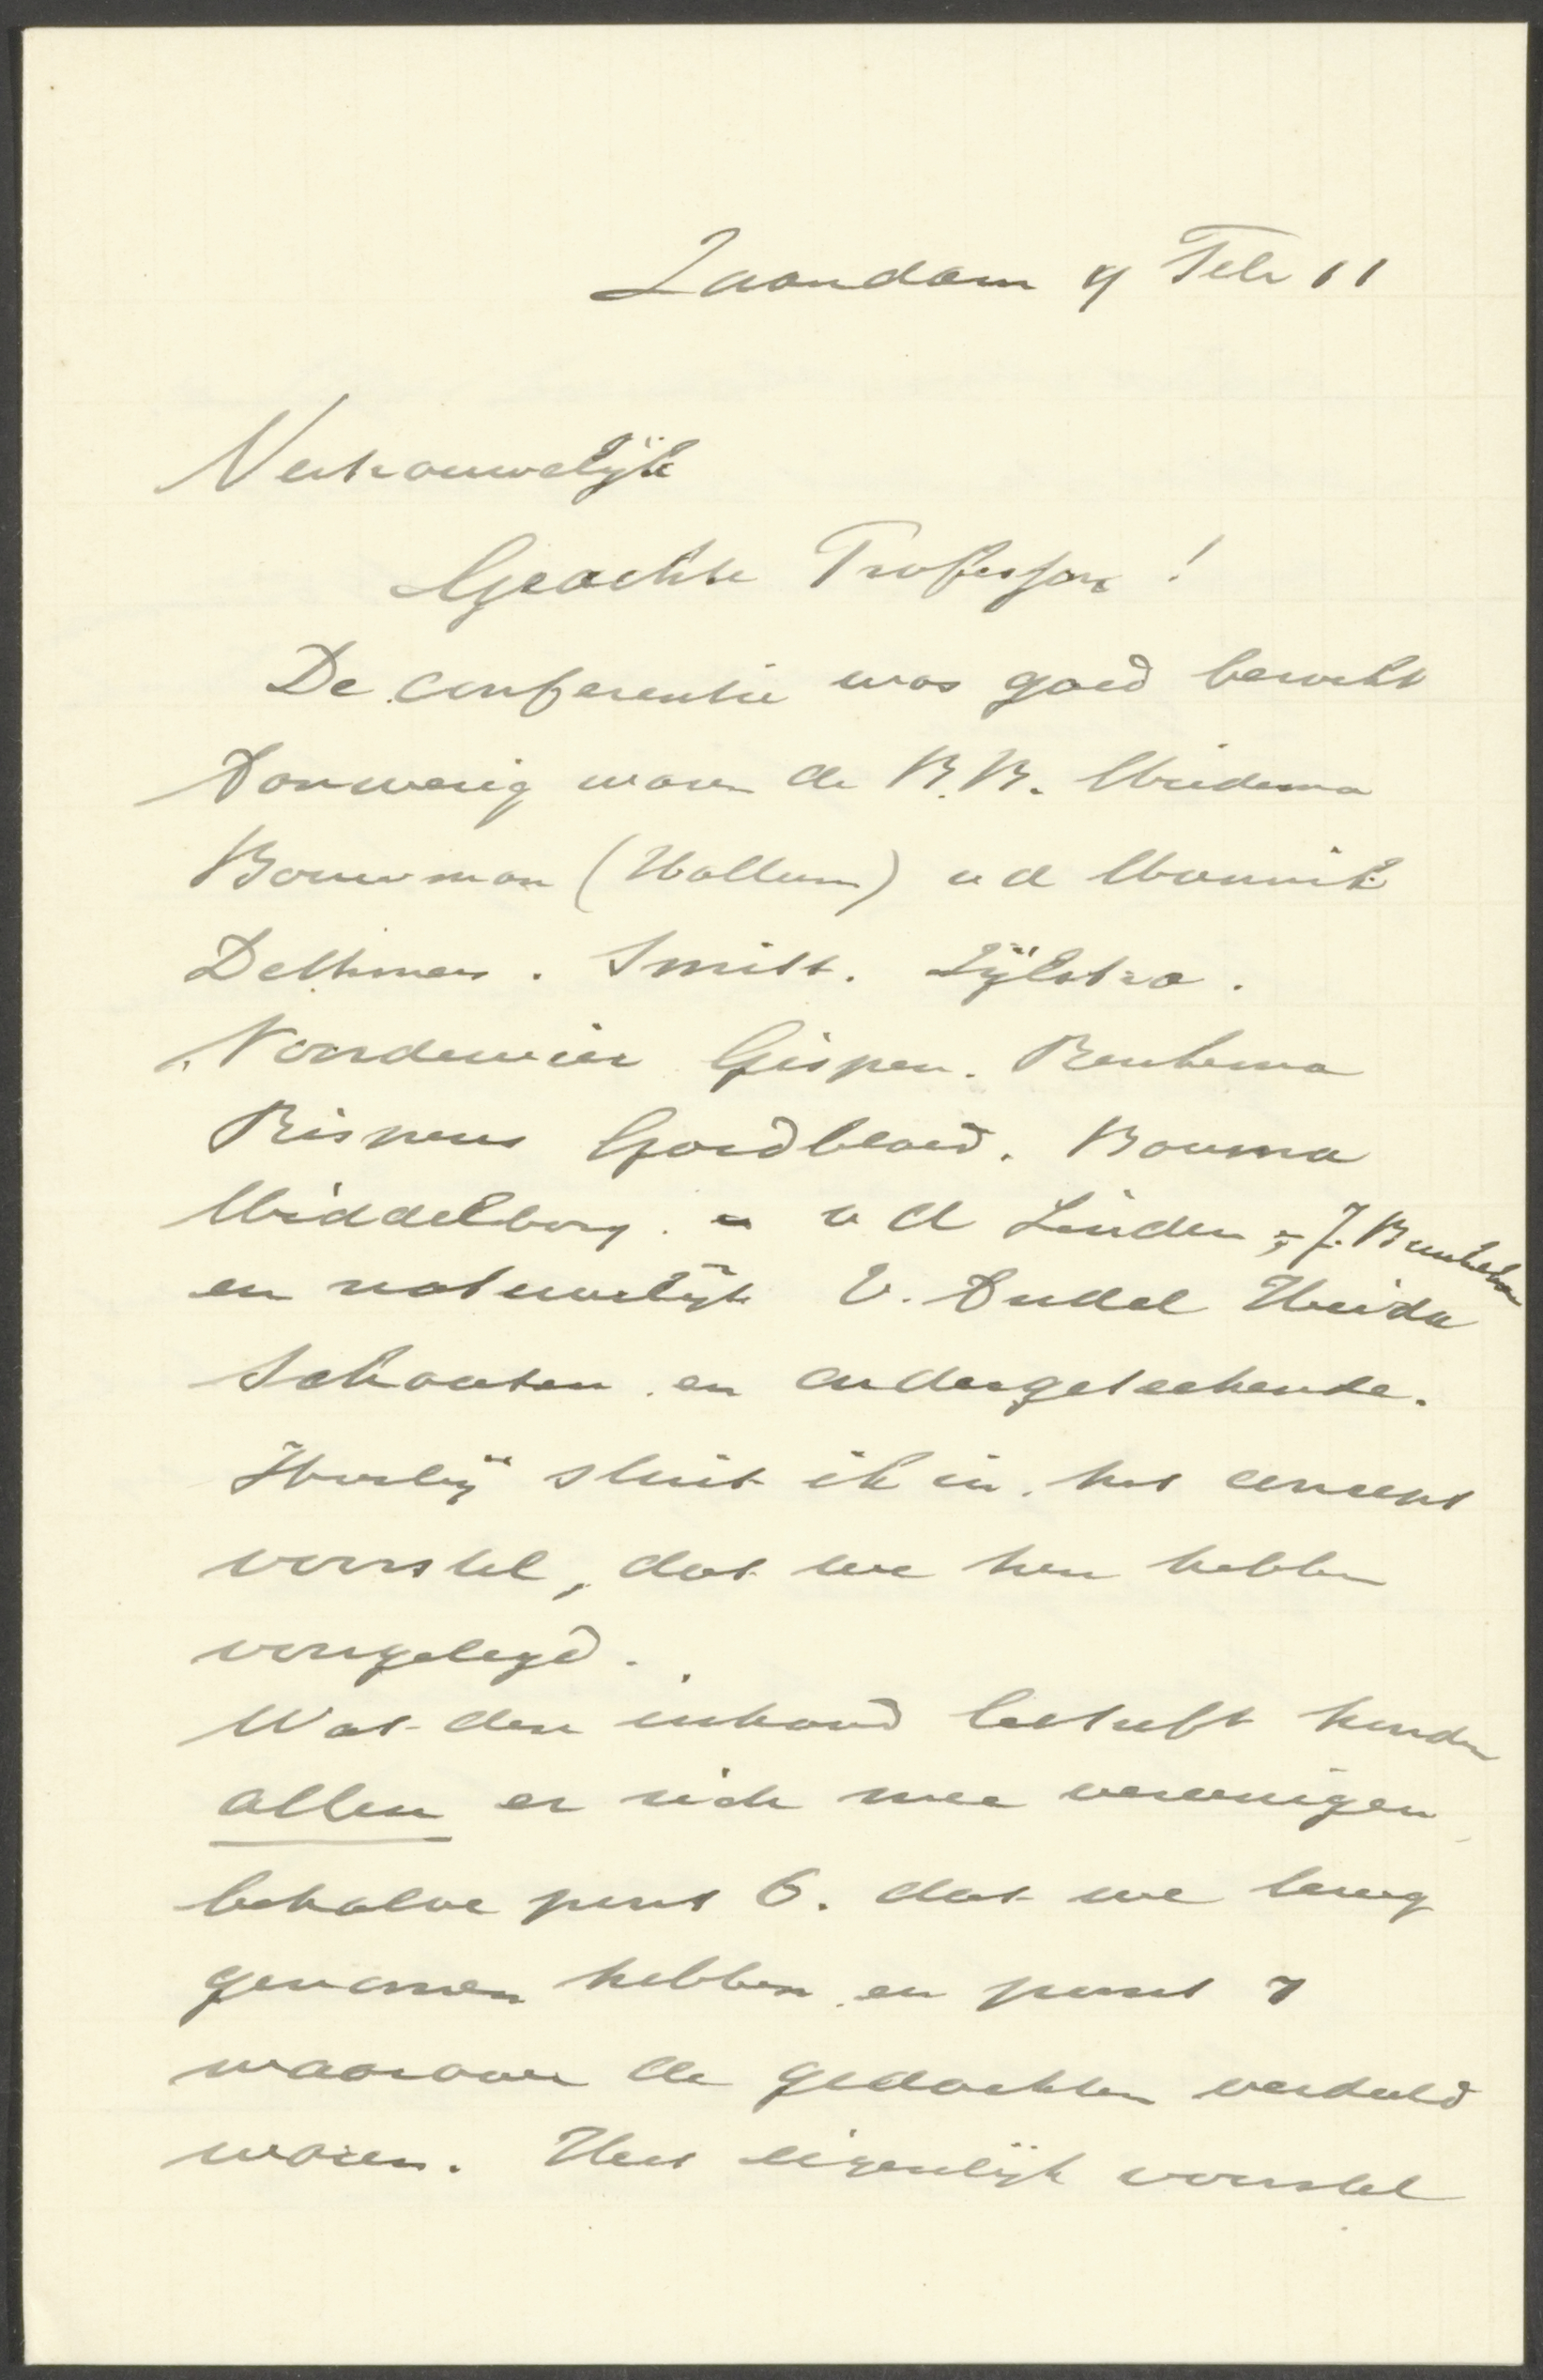 Zaandam 9 Febr 11
Vertrouwelijk
Geachte Professor!
De conferentie was goed bezocht
Aanwezig waren de B.B. Miedema
Bouwman (Hallum) v d Munnik
Dethmers. Smitt. Zijlstra.
Noordewier Gispen. Rentema
Rispens Goedbloed. Bouma
Middelburg. v d Linden J.
en natuurlijk V. Andel Heida
Schouten en ondergeteekende.
Hierbij sluit ik in het concept
voorstel, dat we hun hebben
voorgelegd.
Wat den inhoud betreft konden
allen er zich mee vereenigen
behalve punt 6. dat we terug
genomen hebben en punt 7
waarover de gedachten verdeeld
waren. Het eigenlijk voorstel